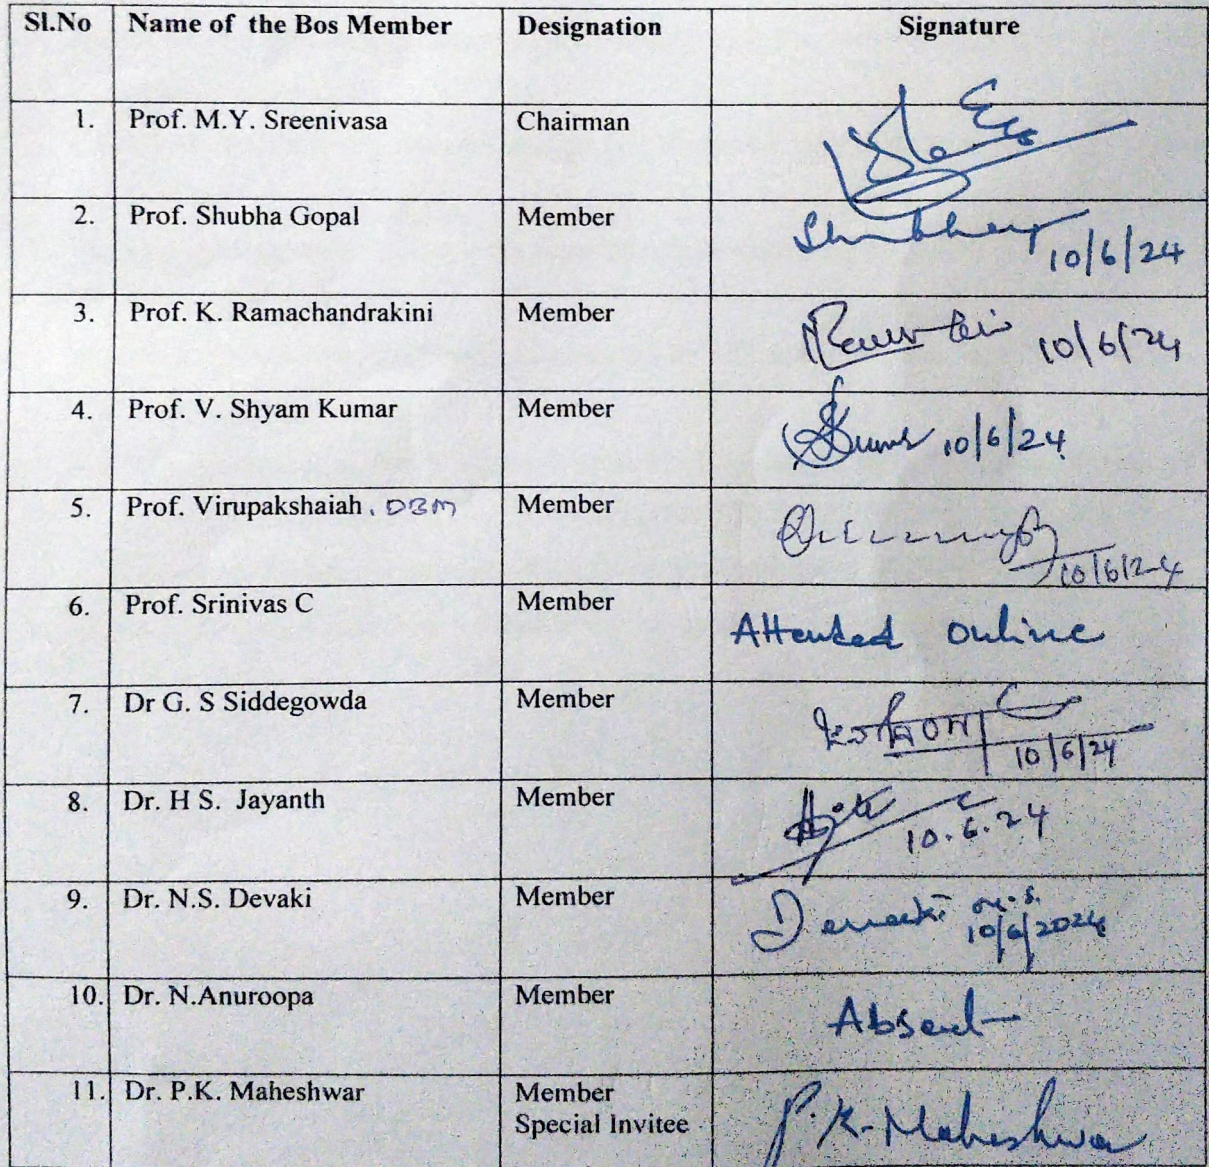 Sl.No Name of the Bos Member Designation Signature
1. Prof. M.Y. Sreenivasa Chairman
2. Prof. Shubha Gopal Member 10/6/24
3. Prof. K. Ramachandrakini Member 10/6/24
4. Prof. V. Shyam Kumar Member 10/6/24
5. Prof. Virupakshaiah. DBM Member 10/6/24
6. Prof. Srinivas C Member Attended online
7. Dr G. S Siddegowda Member 10/6/24
8. Dr. H S. Jayanth Member 10.6.24
9. Dr. N.S. Devaki Member Devaki N.S.
10/6/2024
10. Dr. N.Anuroopa Member Absent
11. Dr. P.K. Maheshwar Member
Special Invitee P.K. Maheshwar